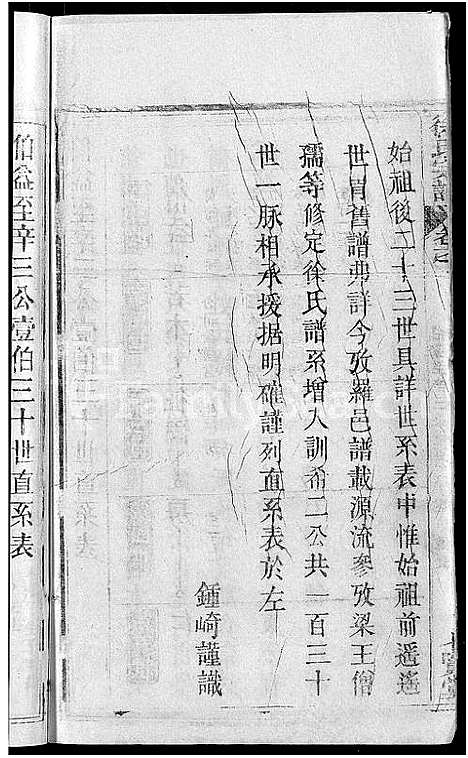 始祖後二十三世具詳世系表中惟始祖前遥遥
世冑舊譜弗詳今攷羅邑譜載源流參攷梁王僧
孺等修定徐氏譜系增入訓希二公共一百三十
世一脉相承援据明確謹列直系表於左
鍾崎謹識
伯益至辛三公壹伯三十世直系表